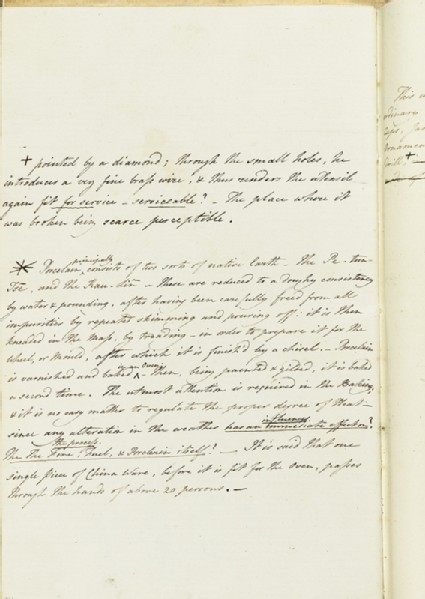 + pointed by a diamond; through the small holes, he
introduces a very fine brass wire, & thus renders the utensil
again fit for service – serviceable? – The place where it
was broken being scarce perceptible.
* Porcelain, principally consists of two sorts of native Earth – The Pe-tun-
Tse, and the Kau-lin – these are reduced to a doughy consistency
by water & pounding, after having been carefully freed from all
impurities by repeated skimming and pouring off: it is then
kneaded in the Mass, by treading – in order to prepare it for the
wheel, or Mould, after which it is finished by a chisel. – Porcelain
is varnished and baked in an oven – Then, being painted & gilded, it is baked
a second time. The utmost attention is required in the Baking,
& it is no easy matter to regulate the proper degree of Heat –
since any alteration in the weather has an immediate influence effect on?
The Fire the piece, Fuel, & Porcelain itself? – It is said that one
single piece of China Ware, before it is fit for the Oven, passes
through the hands of above 20 persons. –
This